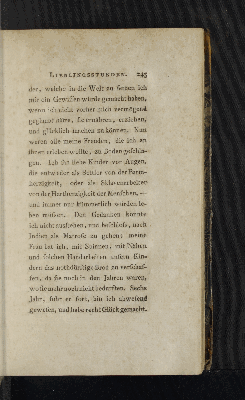 LIEBLINGSSTUNDEN. 245
der, welche in die Welt zu setzen ich
mir ein Gewissen würde gemacht haben,
wenn ich nicht vorher mich vermögend
geglaubt hätte, sie ernähren, erziehen,
und glücklich machen zu können. Nun
waren alle meine Freuden, die ich an
ihnen erleben wollte, zu Boden geschla-
gen. Ich sah liebe Kinder vor Augen,
die entweder als Bettler von der Barm-
herzigkeit, oder als Sklavenarbeiter
von der Hartherzigkeit der Menschen,
und immer nur kümmerlich würden le-
ben müssen. Den Gedanken konnte
ich nicht ausstehen, und beschloss, nach
Indien als Matrose zu gehen; meine
Frau liess ich, mit Spinnen, mit Nähen
und solchen Handarbeiten unsern Kin-
dern das nothdürftige Brod zu verschaf-
fen, da sie noch in den Jahren waren,
wo sie mehr noch nicht bedurften. Sechs
Jahr, fuhr er fort, bin ich abwesend
gewesen, und habe recht Glück gemacht.